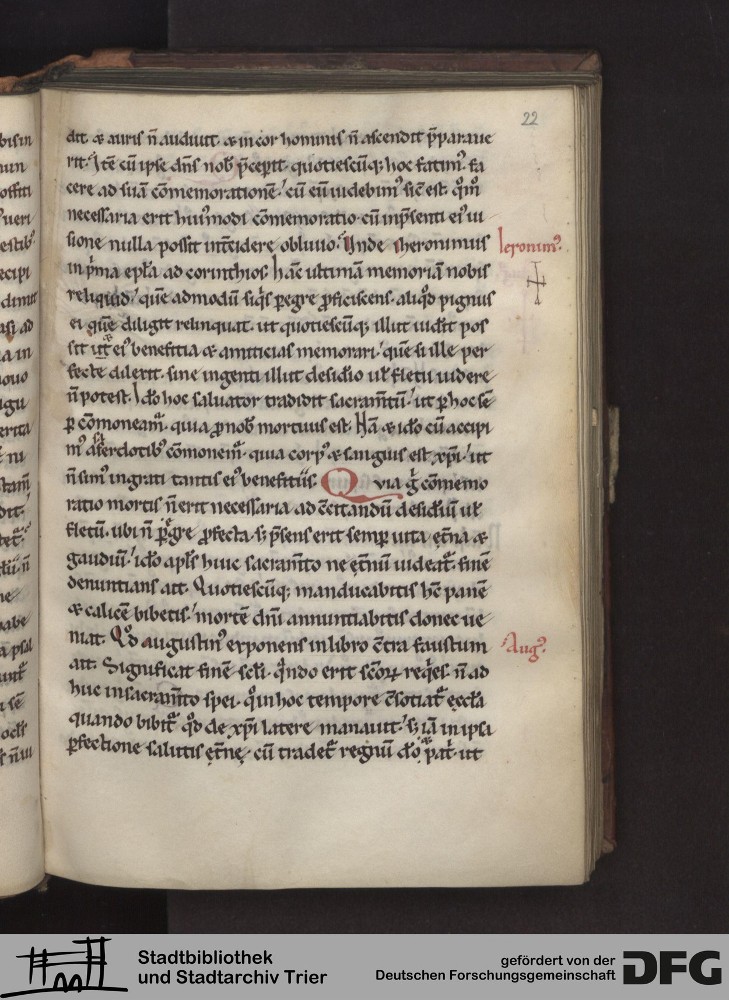 22
dit. & auris ñ audiuit. & in cor hominis ñ ascendit p̄paraue
rit. Itē cū ipse dn̄s nob̄ p̄cepit. quotiescūq; hoc fatim᷒. fa
cere ad suā cōmemorationē. cū eū uidebim᷒ sic̄ est. qm̄
necessaria erit hui᷒modi cōmemoratio. cū inp̄senti ei᷒ ui
sione nulla possit int̄cidere obliuio. Vnde Iheronimus
Ieronim᷒.
in p̄ma ep̄la ad corinthios. hāc ultimā memoriā nobis
reliquid. quē admodū siq̄s peregre ꝓficiscens. aliq̄d pignus
ei quē diligit relinquat. ut quotiescūq; illut uidit pos
sit ut & ei᷒ benefitia & amiticias memorari. quē si ille per
fecte dilexit. sine ingenti illut desidio uł fletu uidere
ñ potest. Ido hoc saluator tradidit sacram̄tū. ut p̱ hoc sē
p̱ cōmoneam᷒. quia ꝓ nob̄ mortuus est. Nā & ido cū accipi
m᷒ a sacerdotib᷒ cōmonem᷒. quia corp᷒ & sanguis est xp̄i. ut
ñ sim᷒ ingrati tantis ei᷒ benefitiis. Quia g̊ cōmemo
ratio mortis ñ erit necessaria ad excitandū desidiū uł
fletū. ubi ñ p̱egre ꝓfecta. s; p̄sens erit semp̱ uita et̄na &
gaudiū. ido apl̄s huic sacram̄to ne et̄nū uideat᷒. finē
denuntians ait. Quotiescūq; manducabitis hc̄ panē
& calicē bibetis. mortē dn̄i annuntiabitis donec ue
niat. Qd̄ augustin᷒ exponens in libro cōtra faustum
Aug᷒.
ait. Significat finē scl̄i. q̄ndo erit scōꝝ req̇es. ñ ad
huc in sacram̄to spei. q̊ in hoc tempore c̄sotiat᷒ eccła
quando bibit᷒ qd̄ de xp̄i latere manauit. s; iā in ipsa
p̱fectione salutis et̄nę. cū tradet᷒ regnū do & pat̄. ut
Stadtbibliothek
und Stadtarchiv Trier
gefördert von der
Deutschen Forschungsgemeinschaft
DFG